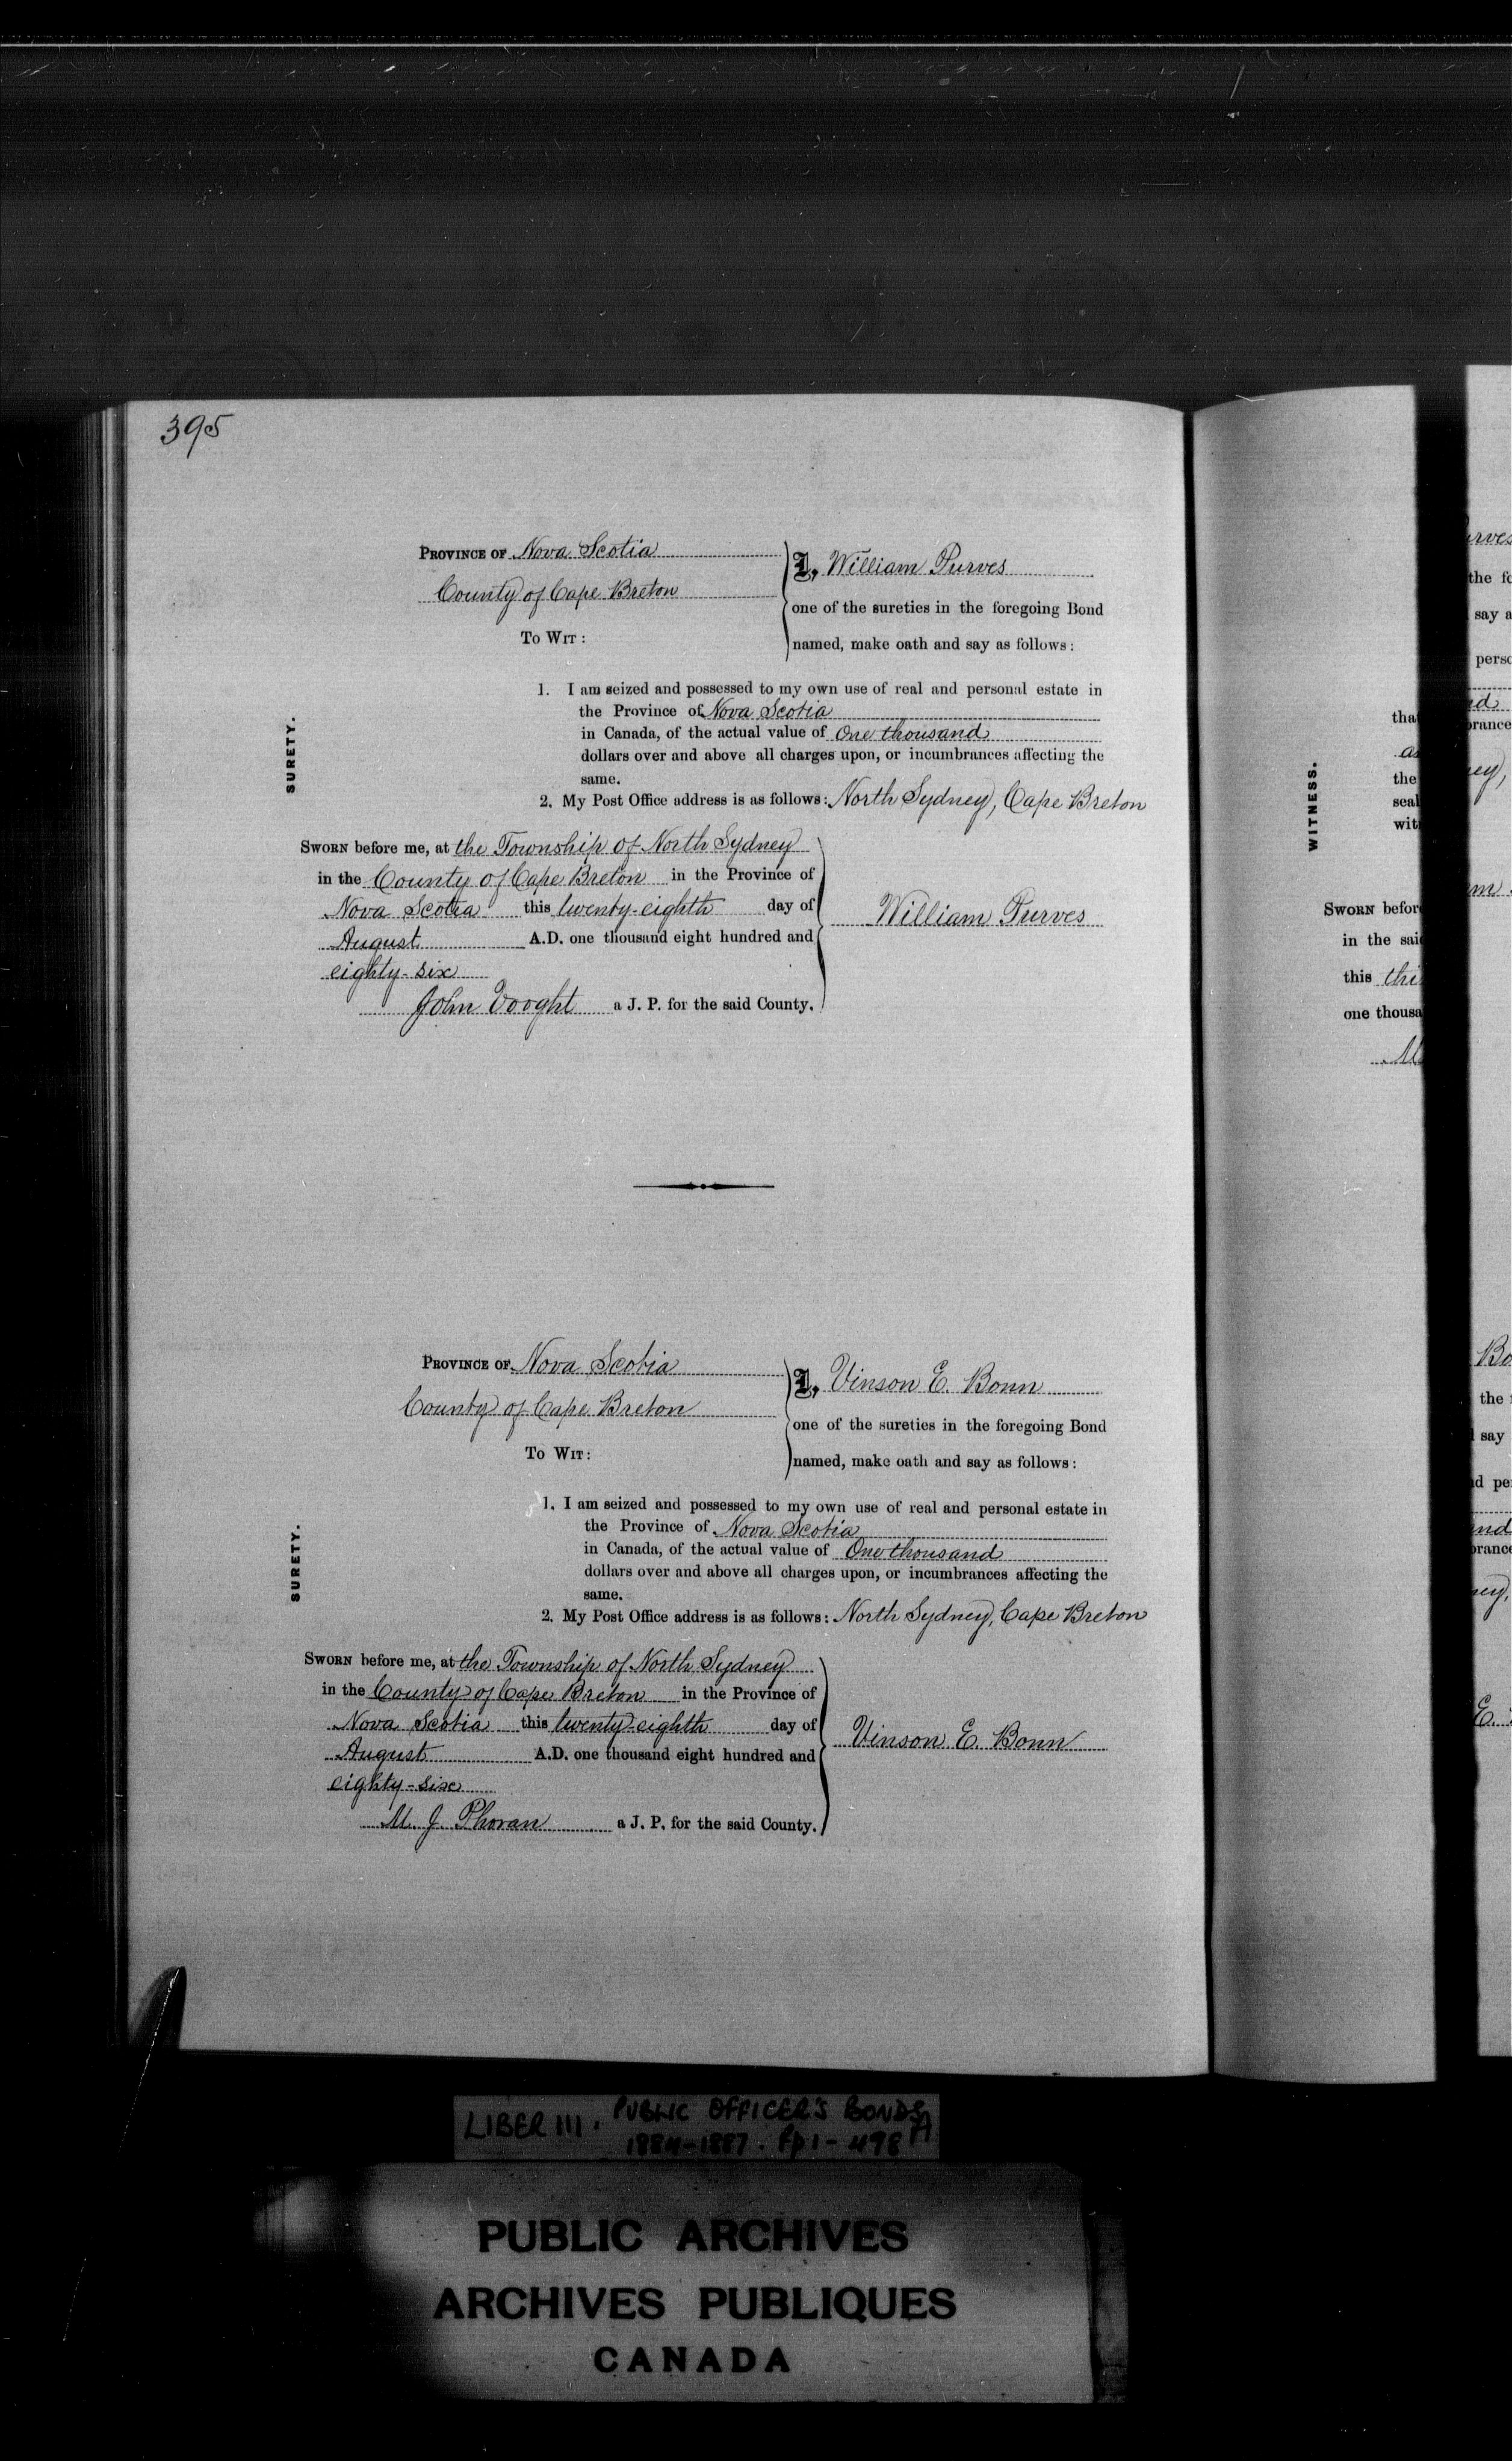 395
PROVINCE OF Nova Scotia
County of Cape Breton
TO WIT :
I, William Purves
one of the sureties in the foregoing Bond
named, make oath and say as follows :
SURETY.
1. I am seized and possessed to my own use of real and personal estate in
the Province of Nova Scotia
in Canada, of the actual value of One thousand
dollars over and above all charges upon, or incumbrances affecting the
same.
2. My Post Office address is as follows : North Sydney, Cape Breton
SWORN before me, at the Township of North Sydney
in the County of Cape Breton in the Province of
Nova Scotia this twenty-eighth day of
August A.D. one thousand eight hundred and
eighty-six
John Vooght a J. P. for the said County.
William Purves
PROVINCE OF Nova Scotia
County of Cape Breton
TO WIT :
I, Vinson E. Bonn
one of the sureties in the foregoing Bond
named, make oath and say as follows :
SURETY.
1. I am seized and possessed to my own use of real and personal estate in
the Province of Nova Scotia
in Canada, of the actual value of One thousand
dollars over and above all charges upon, or incumbrances affecting the
same.
2. My Post Office address is as follows : North Sydney, Cape Breton
SWORN before me, at the Township of North Sydney
in the County of Cape Breton in the Province of
Nova Scotia this twenty-eighth day of
August A.D. one thousand eight hundred and
eighty-six
M. J. Phoran a J. P. for the said County.
Vinson E. Bonn
WITNESS.
the
SWORN
in the
this
one
the
say
LIBER III. PUBLIC OFFICER'S BONDS
1884-1887. pp 1- 498A
PUBLIC ARCHIVES
ARCHIVES PUBLIQUES
CANADA